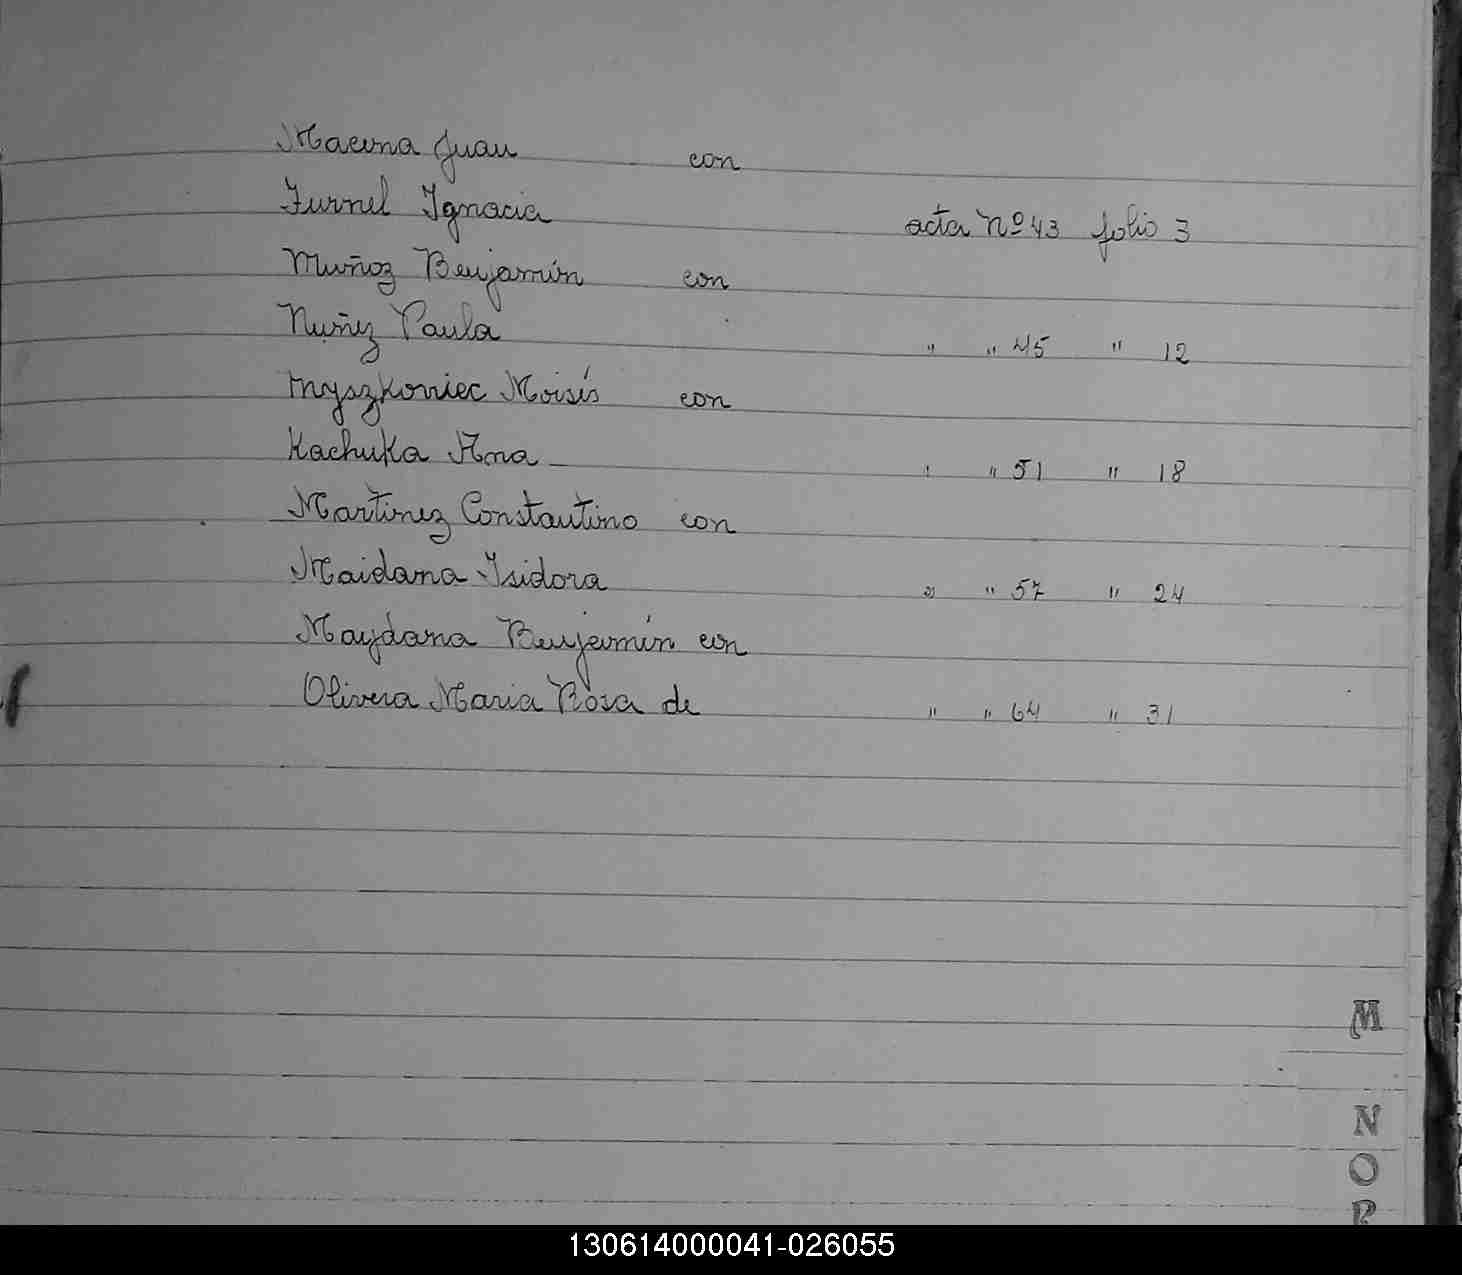 Macuna Juan con
Furnel Ignacia acta Nº 43 folio 3
Muñoz Benjamín con
Nuñez Paula " " 45 " 12
Myszkoviec Moisés con
Kachuka Ana " " 51 " 18
Martinez Constantino con
Maidana Isidora " " 57 " 24
Maydana Benjamín con
Olivera Maria Rosa de " " 64 " 31
M
N
O
P
130614000041-026055